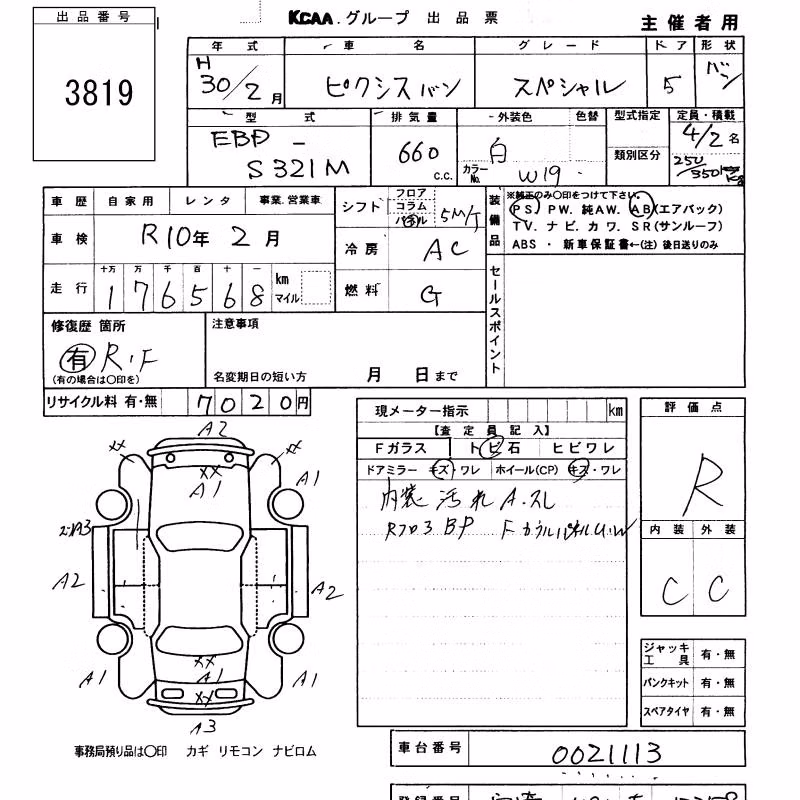 出品番号
3819
KCAA.グループ 出品票
主催者用
年式 車名 グレード ドア 形状
H30/2月 ピクシスバン スペシャル 5 バン
型式 排気量 外装色 色替 型式指定 定員・積載
EBD-S321M 660c.c. 白 カラーNo. W19 類別区分 4/2名 250/350kg
車歴 自家用 レンタ 事業.営業車
車検 R10年2月
走行 十万 万 千 百 十 一
176568 km マイル
シフト フロア コラム パネル 5M/T
冷房 AC
燃料 G
装備品 ※純正のみ○印をつけて下さい。
PS. PW. 純AW. AB(エアバック)
TV. ナビ. カワ. SR(サンルーフ)
ABS ・ 新車保証書←(注) 後日送りのみ
セールスポイント
修復歴 箇所
有 R・F
(有の場合は○印を)
注意事項
名変期日の短い方 月 日まで
リサイクル料 有・無 7020円
現メーター指示 km
【査定員記入】
Fガラス トビ石 ヒビワレ
ドアミラー キズ・ワレ ホイール(CP) キズ・ワレ
内装 汚れ A.スレ
Rフロ3 BP F
評価点
R
内装 外装
C C
A2
XX XX
XX
A1 A1
A2 A2
XX
A1 A1 A1
XX
A3
ジャッキ工具 有・無
パンクキット 有・無
スペアタイヤ 有・無
事務局預り品は○印 カギ リモコン ナビロム
車台番号 0021113
登録番号